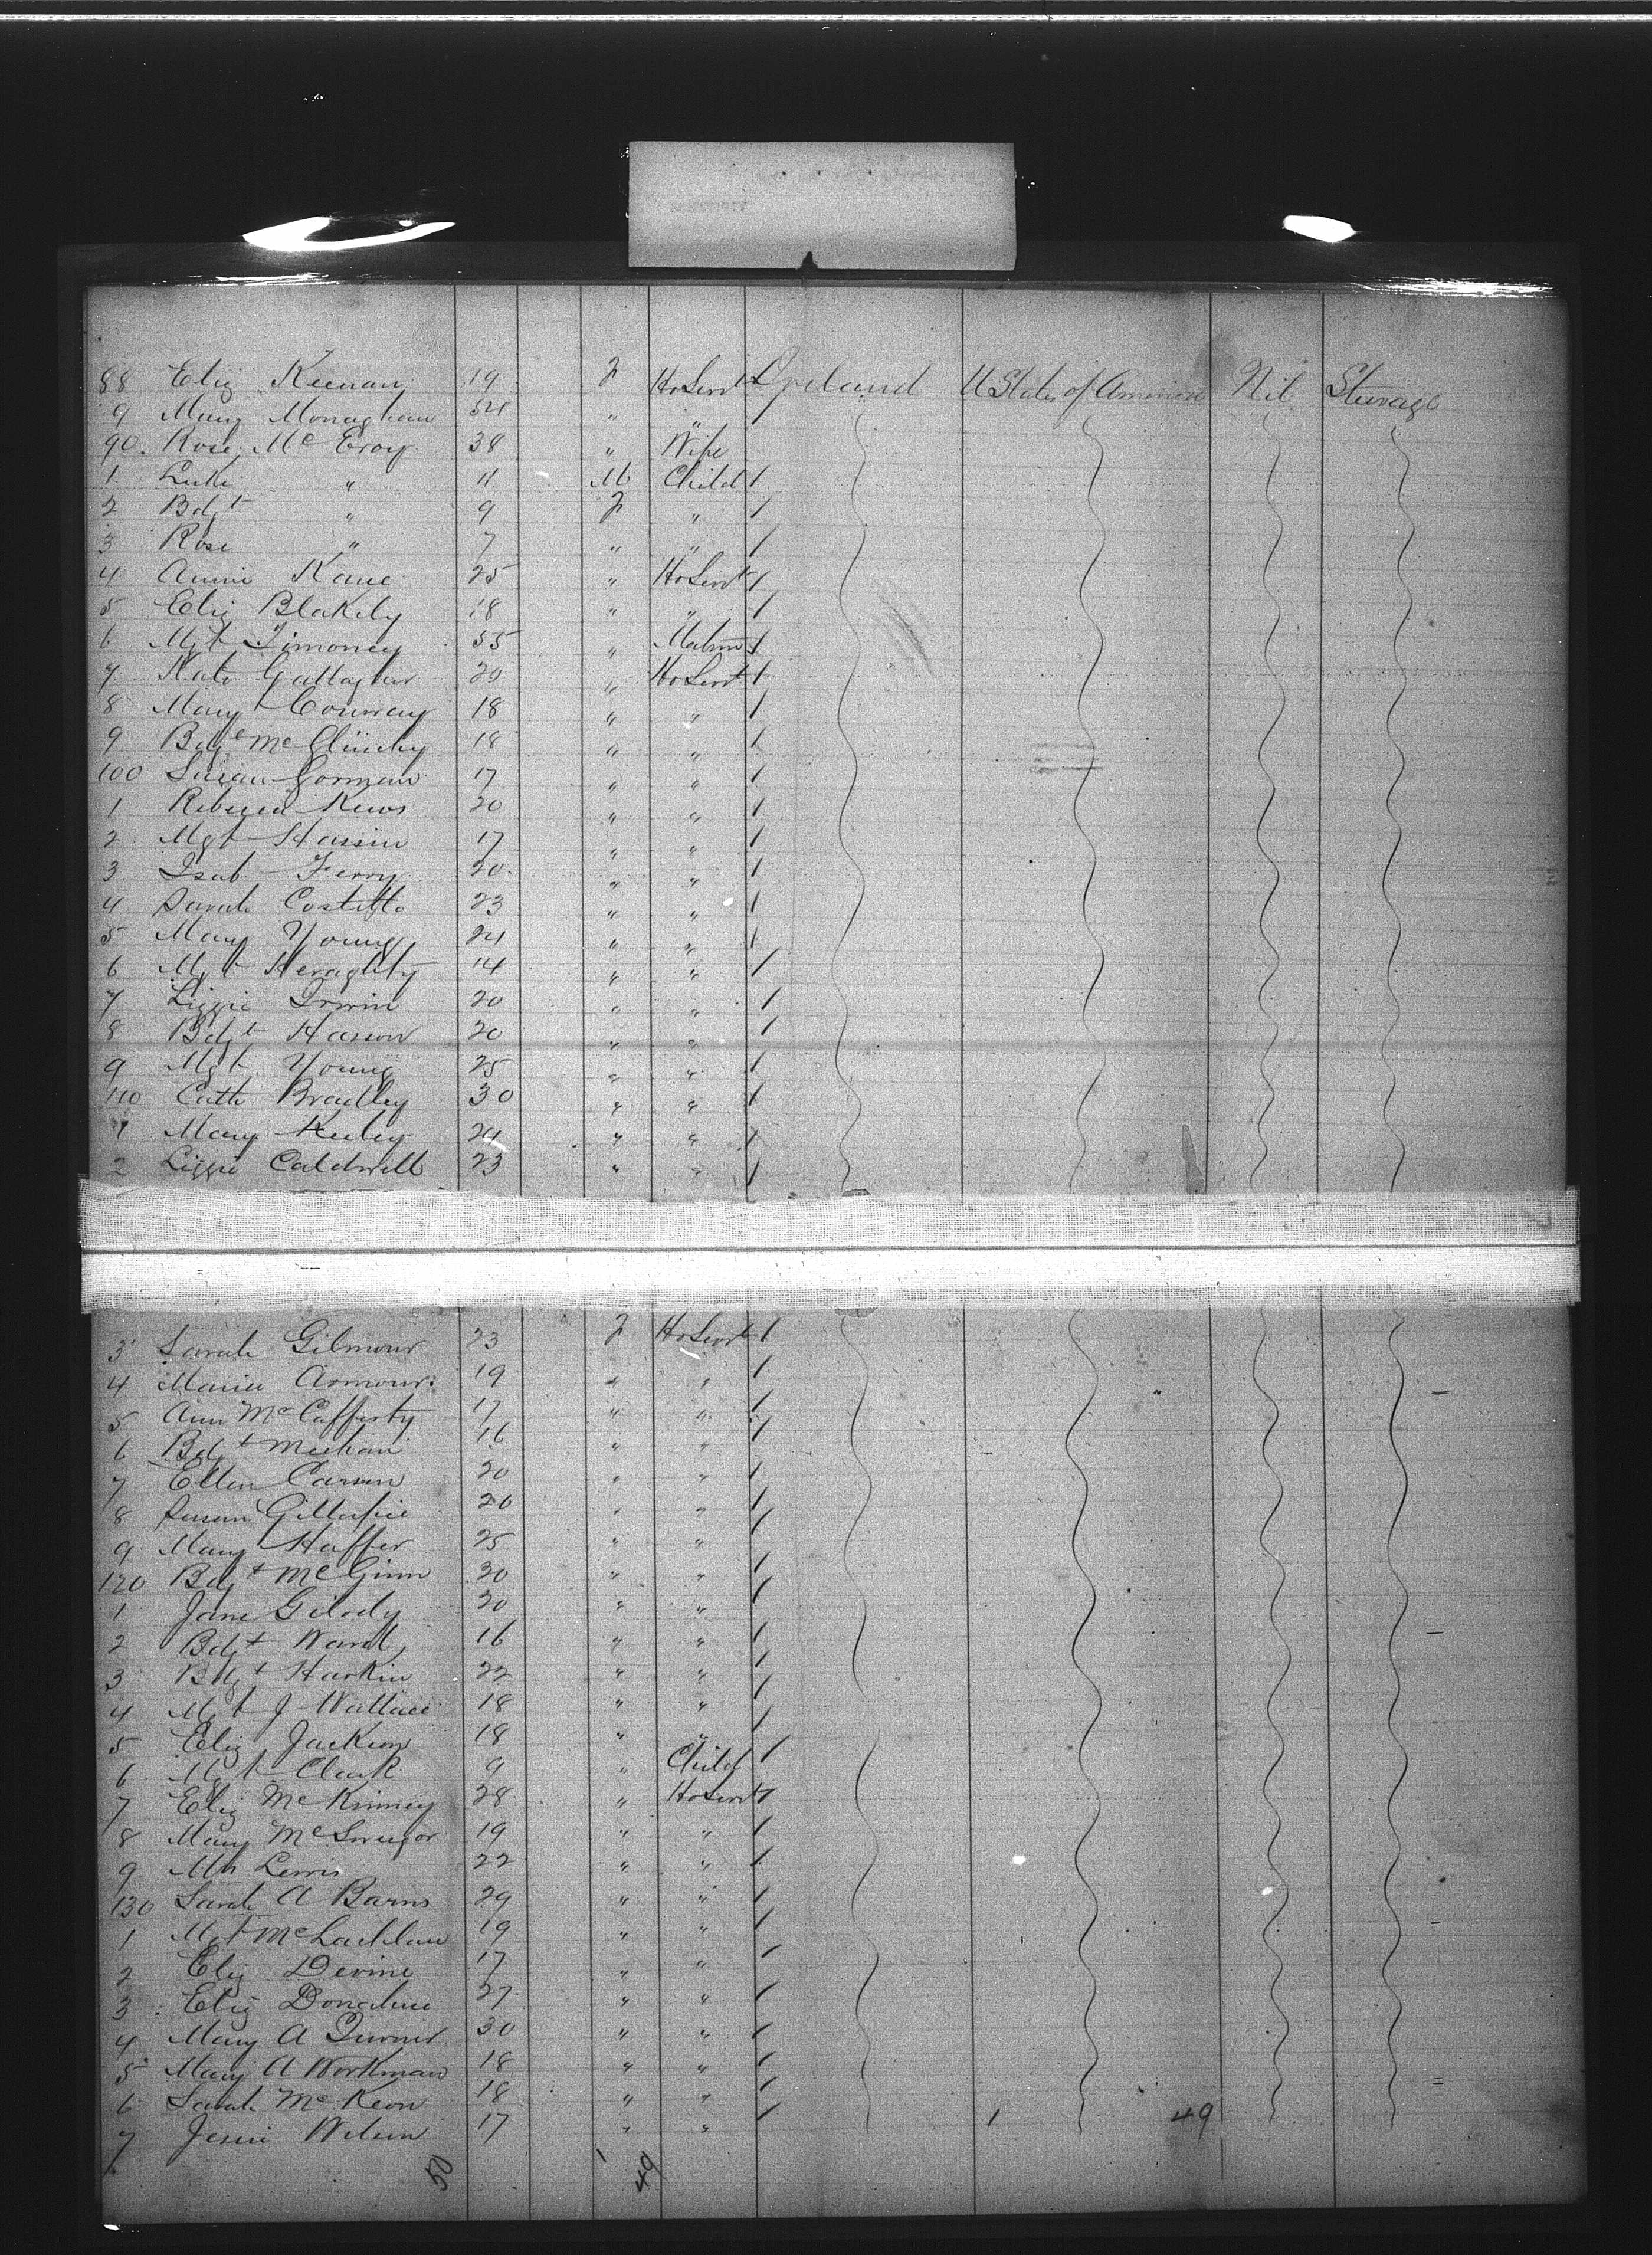 88 Eliz Keenan 19 F HoServt Ireland U States of America Nil Steerage
9 Mary Monaghan 54 " "
90. Rose McEvoy 38 " Wife
1 Luke " 11 M Child 1
2 Bdgt " 9 F " 1
3 Rose " 7 " " 1
4 Annie Kane 25 " HoServt 1
5 Eliz Blakely 18 " " 1
6 Mgt Timoney 55 " Matron 1
7 Kate Gallagher 20 " HoServt 1
8 Mary Conway 18 " " 1
9 Bdgt McGlinchy 18 " " 1
100 Susan Gorman 17 " " 1
1 Rebecca 20 " " 1
2 Mgt Hassin 17 " " 1
3 Isab Ferry 20 " " 1
4 Sarah Costello 23 " " 1
5 Mary Young 24 " " 1
6 Mgt Heraghty 14 " " 1
7 Lizzie Irwin 20 " " 1
8 Bdgt Hasson 20 " " 1
9 Mgt Young 25 " " 1
110 Cath Bradley 30 " " 1
1 Mary Keeley 24 " " 1
2 Lizzie Caldwell 23 " " 1
3 Sarah Gilmour 23 F HoServt 1
4 Maria Armour 19 " " 1
5 Ann McCafferty 17 " " 1
6 Bdgt Meehan 16 " " 1
7 Ellen Carson 20 " " 1
8 Susan Gillespie 20 " " 1
9 Mary Haffer 25 " " 1
120 Bdgt McGinn 30 " " 1
1 Jane 20 " " 1
2 Bdgt Ward 16 " " 1
3 Bdgt Harkin 22 " " 1
4 Mgt J Wallace 18 " " 1
5 Eliz Jackson 18 " " 1
6 Mgt Clark 9 " Child 1
7 Eliz McKinney 28 " HoServt 1
8 Mary 19 " " 1
9 Lewis 22 " " 1
130 Sarah A Barns 29 " " 1
1 Mgt McLachlan 19 " " 1
2 Eliz Devine 17 " " 1
3 Eliz Donahue 27 " " 1
4 Mary A Turner 30 " " 1
5 Mary A Workman 18 " " 1
6 Sarah McKeon 18 " " 1
7 Jessie Wilson 17 " " 1 1 49
50 1 49